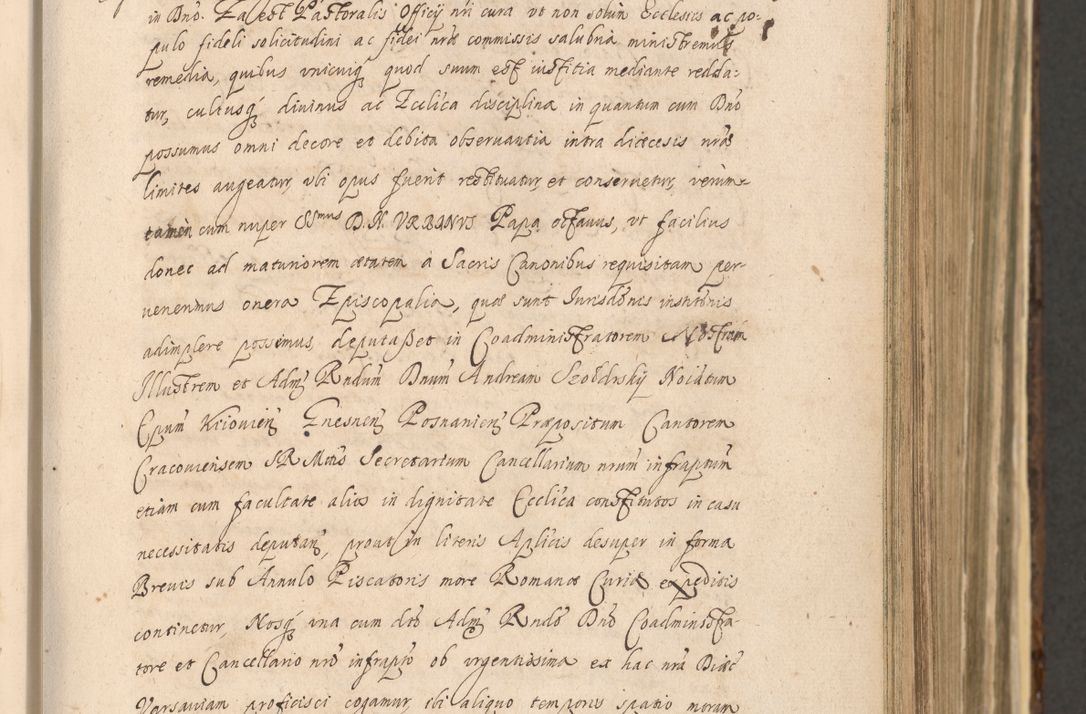 in Dno. Ea est Pastoralis Officij nri cura vt non solum Ecclesiis ac po-
pulo fideli solicitudini ac fidei nræ commissis salubria ministremus
remedia, quibus vnicuiq quod suum est iustitia mediante redda-
tur, cultusq diuinus ac Eccl'ica disciplina in quantum cum Dno
possumus omni decore et debita obseruantia intra diœcesis nræ
limites augeatur, vbi opus fuerit restituatur et conseruetur, verum-
tamen cum nuper SSmus D. N. VRBANVS Papa octauus, vt facilius
donec ad maturiorem ætatem a Sacris Canonibus requisitam per-
uenerimus onera Episcopalia, quæ sunt Jurisdonis institonis
adimplere possimus, deputasset in Coadministratorem Nostrum
Illustrem et Adm Rndum Dnum Andream Szołdrsky Noiatum
Epum Kiiouien Gnesnen Posnanien Præpositum Cantorem
Cracouiensem SR Mtis Secretarium Cancellarium nrum infraptum
etiam cum facultate alios in dignitate Eccl'ica constitutos in casu
necessitatis deputan, prout in literis Aplicis desuper in forma
Breuis sub Annulo Piscatoris more Romanæ Curiæ expeditis
continetur, Nosq vna cum dto Adm Rndo Dno Coadministra-
tore et Cancellario nro infrapto ob vrgentissima ex hac nra Diæc
Varsauiam proficisci cogamur, ibi aliquo temporis spatio moram